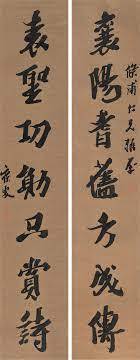 襄陽耆舊方成傳
甫仁兄雅
表聖功勛只賞詩